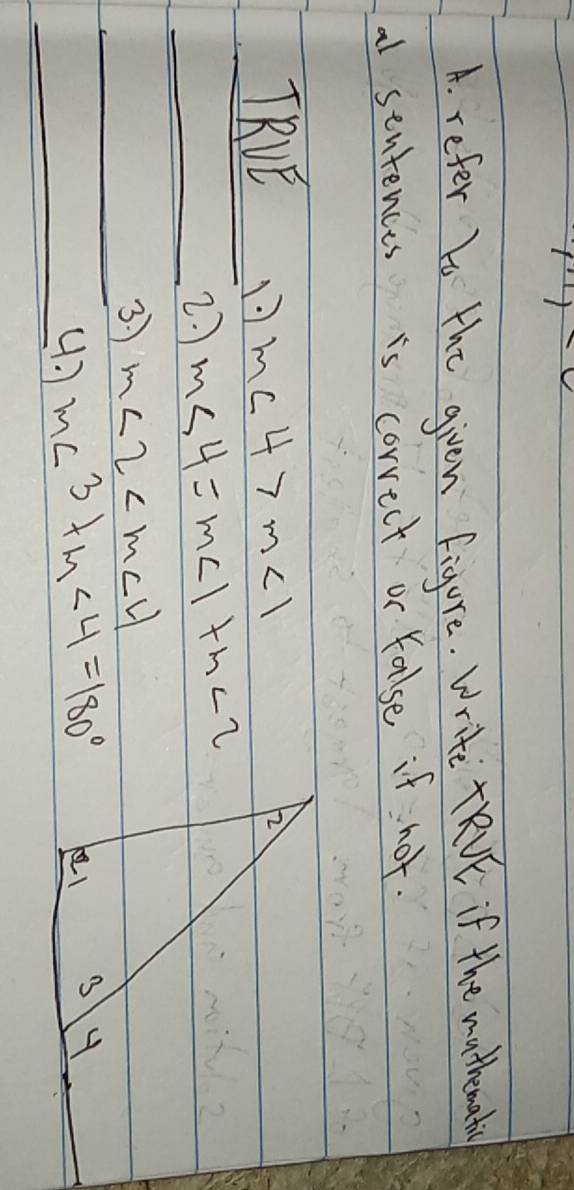 A. refer to the given figure. Write TRUE if the mathematic
al sentences is correct or false if not.
TRUE 1.) m< 4 > m <1
2.) m< 4 = m<1 + m <2
3.) m<2 < m<4
4.) m< 3 + m <4 = 180°
2
1
3
4